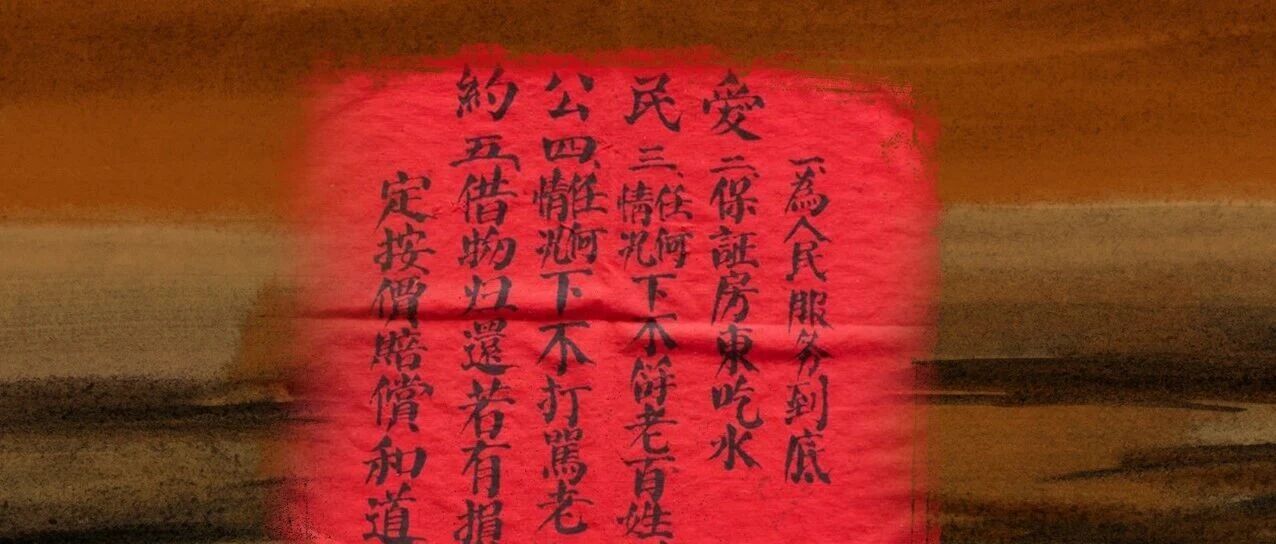 一、為人民服务到底
愛 二、保証房東吃水
民 三、任何情况下不老百姓
公 四、任何情况下不打罵老
約 五、借物归還若有損
定按價賠償和道